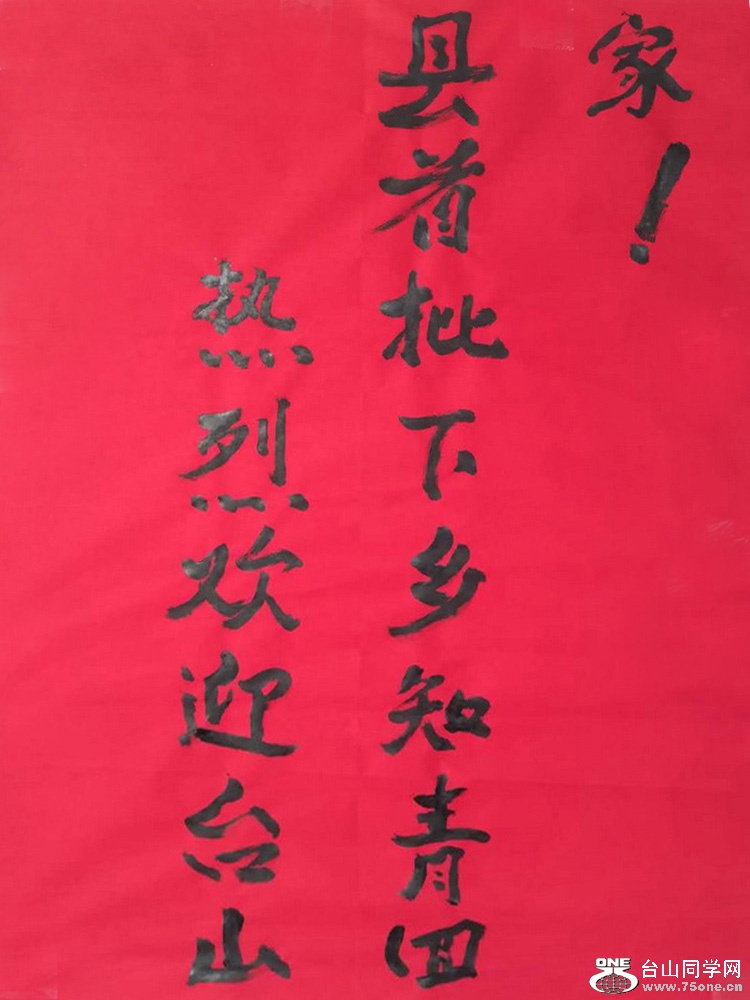 热烈欢迎台山
县首批下乡知青回
家！
ONE
台山同学网
www.75one.cn